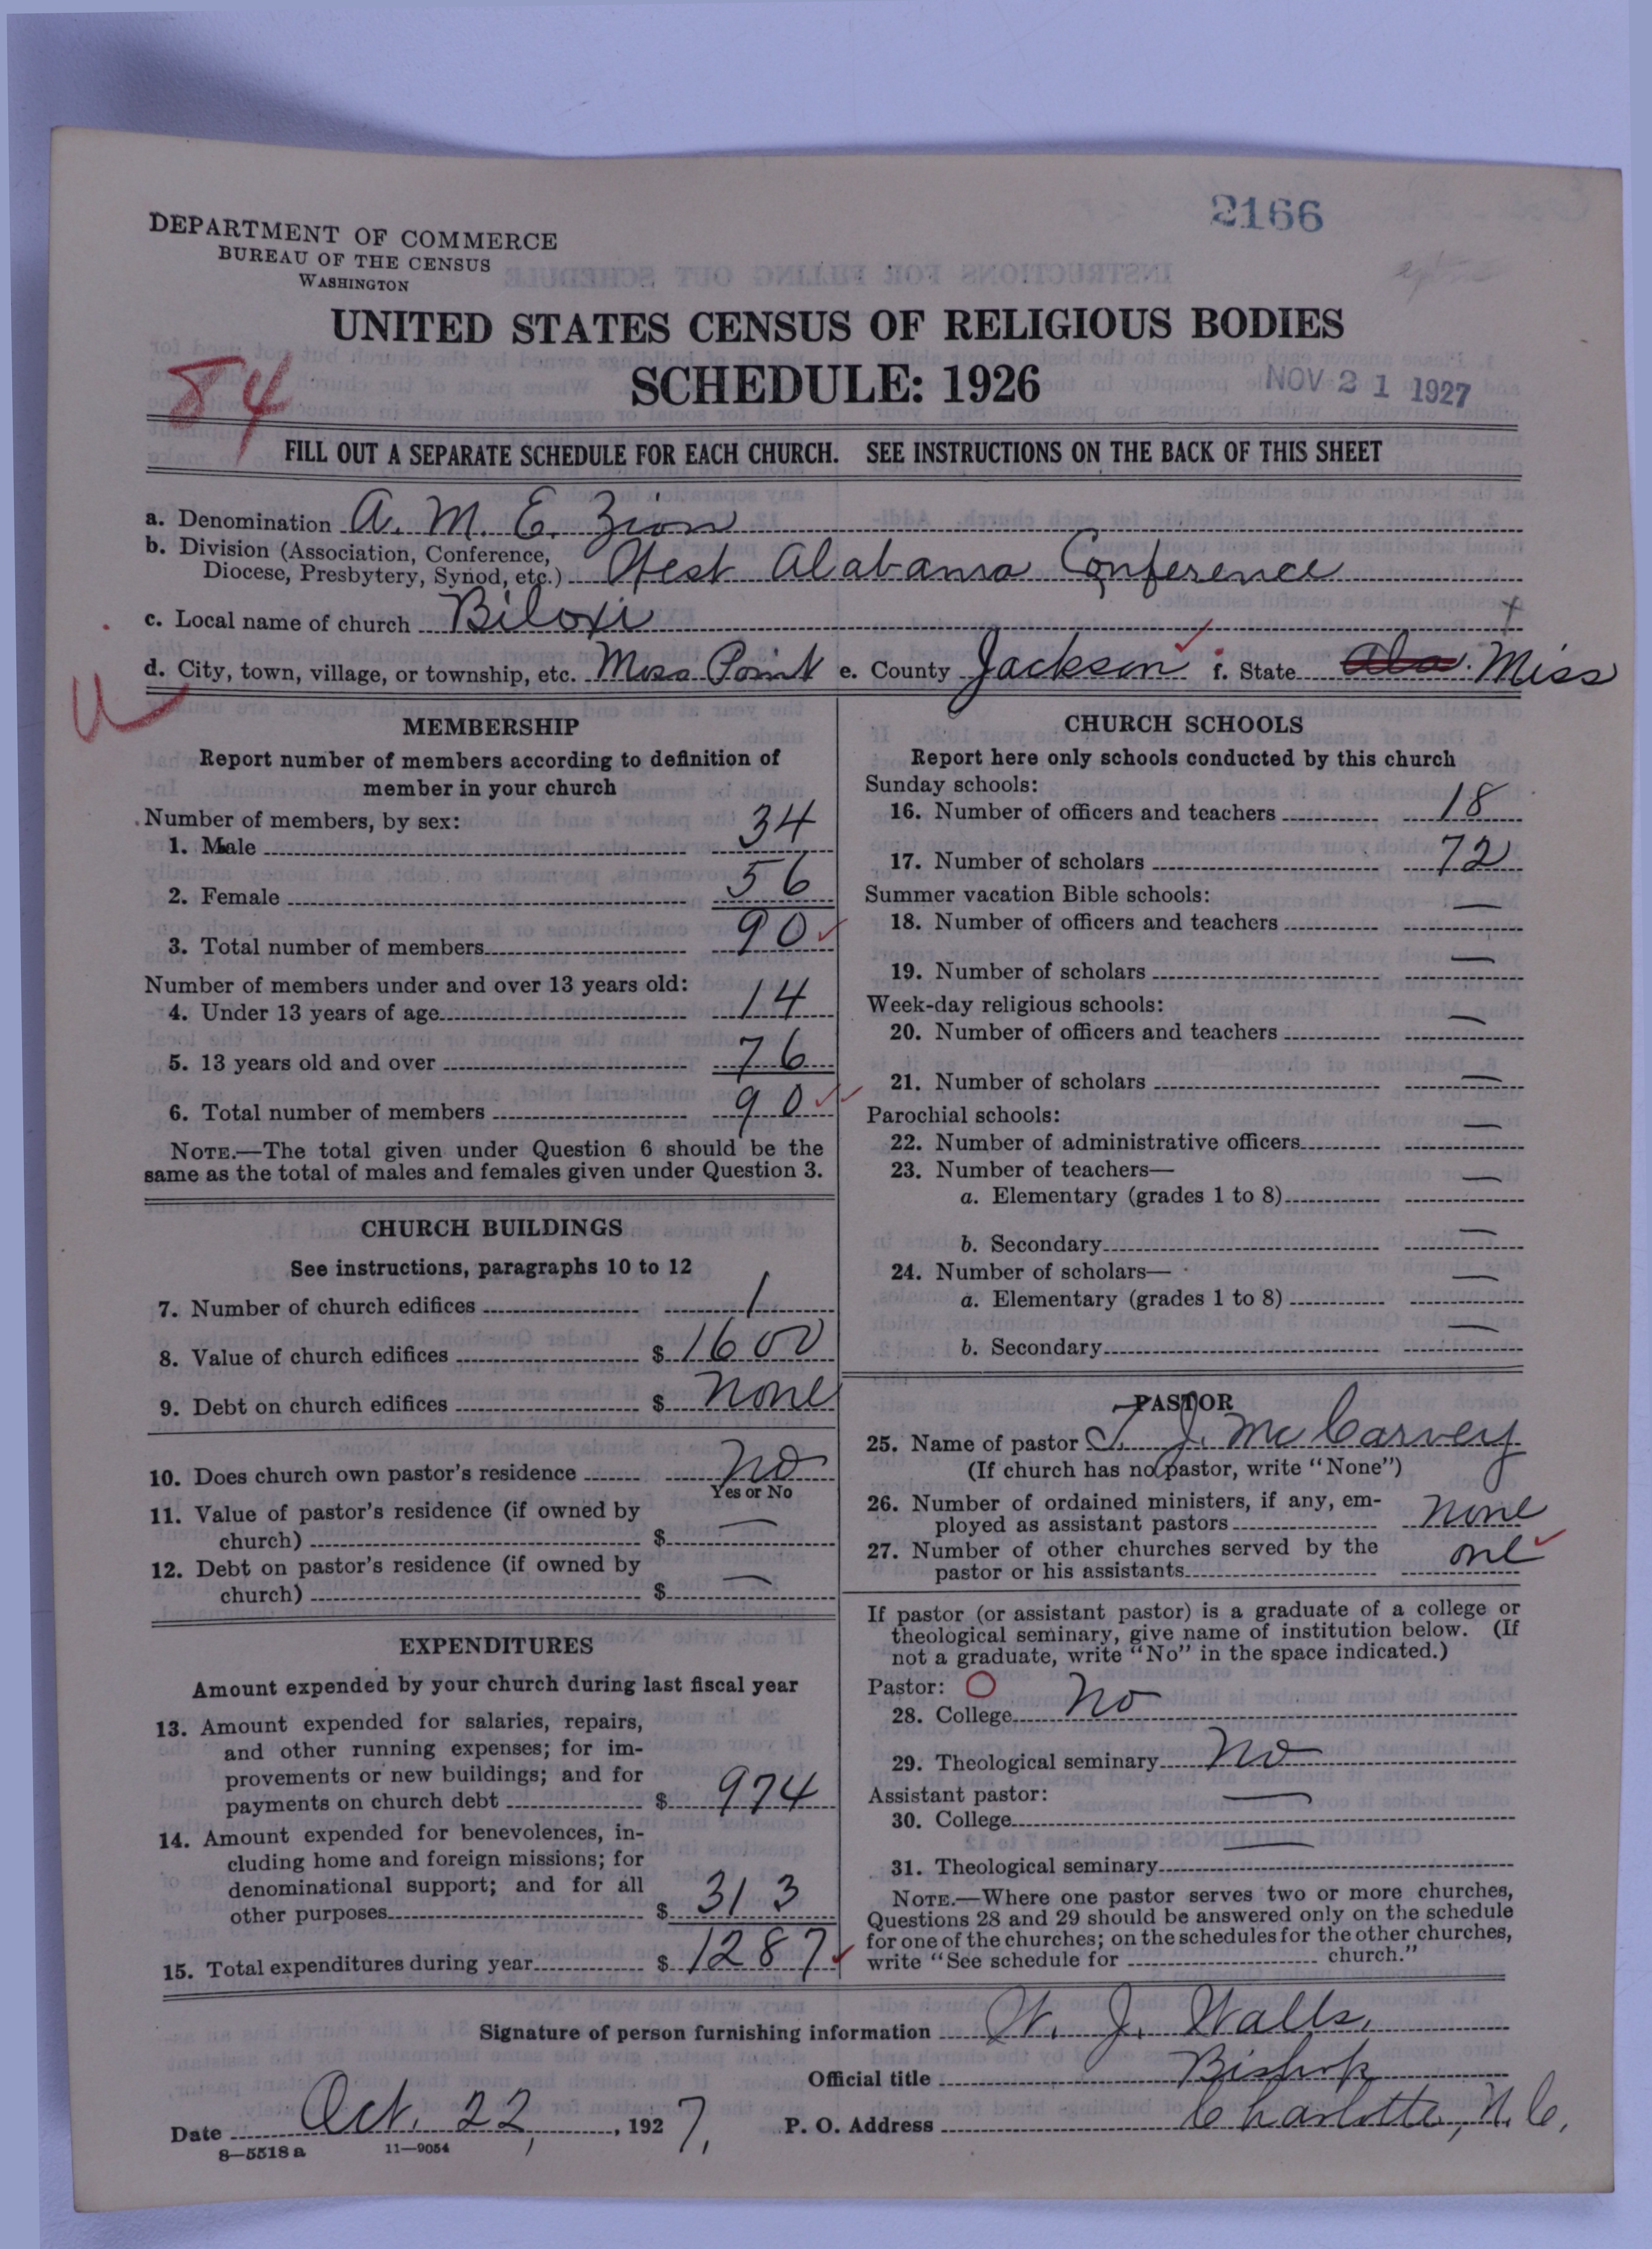 2166
DEPARTMENT OF COMMERCE
BUREAU OF THE CENSUS
WASHINGTON
UNITED STATES CENSUS OF RELIGIOUS BODIES
SCHEDULE: 1926
NOV 21 1927
84
FILL OUT A SEPARATE SCHEDULE FOR EACH CHURCH. SEE INSTRUCTIONS ON THE BACK OF THIS SHEET
a. Denomination A. M. E. Zion
b. Division (Association, Conference,
Diocese, Presbytery, Synod, etc.) West Alabama Conference
c. Local name of church Biloxi
d. City, town, village, or township, etc. Moss Point e. County Jackson f. State Ala. Miss
MEMBERSHIP
Report number of members according to definition of
member in your church
Number of members, by sex:
1. Male 34
2. Female 56
3. Total number of members 90
Number of members under and over 13 years old:
4. Under 13 years of age 14
5. 13 years old and over 76
6. Total number of members 90
NOTE.—The total given under Question 6 should be the
same as the total of males and females given under Question 3.
CHURCH BUILDINGS
See instructions, paragraphs 10 to 12
7. Number of church edifices 1
8. Value of church edifices $ 1600
9. Debt on church edifices $ none
10. Does church own pastor's residence No
Yes or No
11. Value of pastor's residence (if owned by
church) $ —
12. Debt on pastor's residence (if owned by
church) $ —
EXPENDITURES
Amount expended by your church during last fiscal year
13. Amount expended for salaries, repairs,
and other running expenses; for im-
provements or new buildings; and for
payments on church debt $ 974
14. Amount expended for benevolences, in-
cluding home and foreign missions; for
denominational support; and for all
other purposes $ 313
15. Total expenditures during year $ 1287
CHURCH SCHOOLS
Report here only schools conducted by this church
Sunday schools:
16. Number of officers and teachers 18
17. Number of scholars 72
Summer vacation Bible schools:
18. Number of officers and teachers —
19. Number of scholars —
Week-day religious schools:
20. Number of officers and teachers —
21. Number of scholars —
Parochial schools:
22. Number of administrative officers —
23. Number of teachers—
a. Elementary (grades 1 to 8) —
b. Secondary —
24. Number of scholars—
a. Elementary (grades 1 to 8) —
b. Secondary —
PASTOR
25. Name of pastor T. J. McCarvey
(If church has no pastor, write "None")
26. Number of ordained ministers, if any, em-
ployed as assistant pastors none
27. Number of other churches served by the
pastor or his assistants one
If pastor (or assistant pastor) is a graduate of a college or
theological seminary, give name of institution below. (If
not a graduate, write "No" in the space indicated.)
Pastor:
28. College No
29. Theological seminary No
Assistant pastor:
30. College —
31. Theological seminary —
NOTE.—Where one pastor serves two or more churches,
Questions 28 and 29 should be answered only on the schedule
for one of the churches; on the schedules for the other churches,
write "See schedule for church."
Signature of person furnishing information W. J. Walls,
Official title Bishop
Date Oct. 22, 1927, P. O. Address Charlotte, N. C.
8—5518a 11—9054